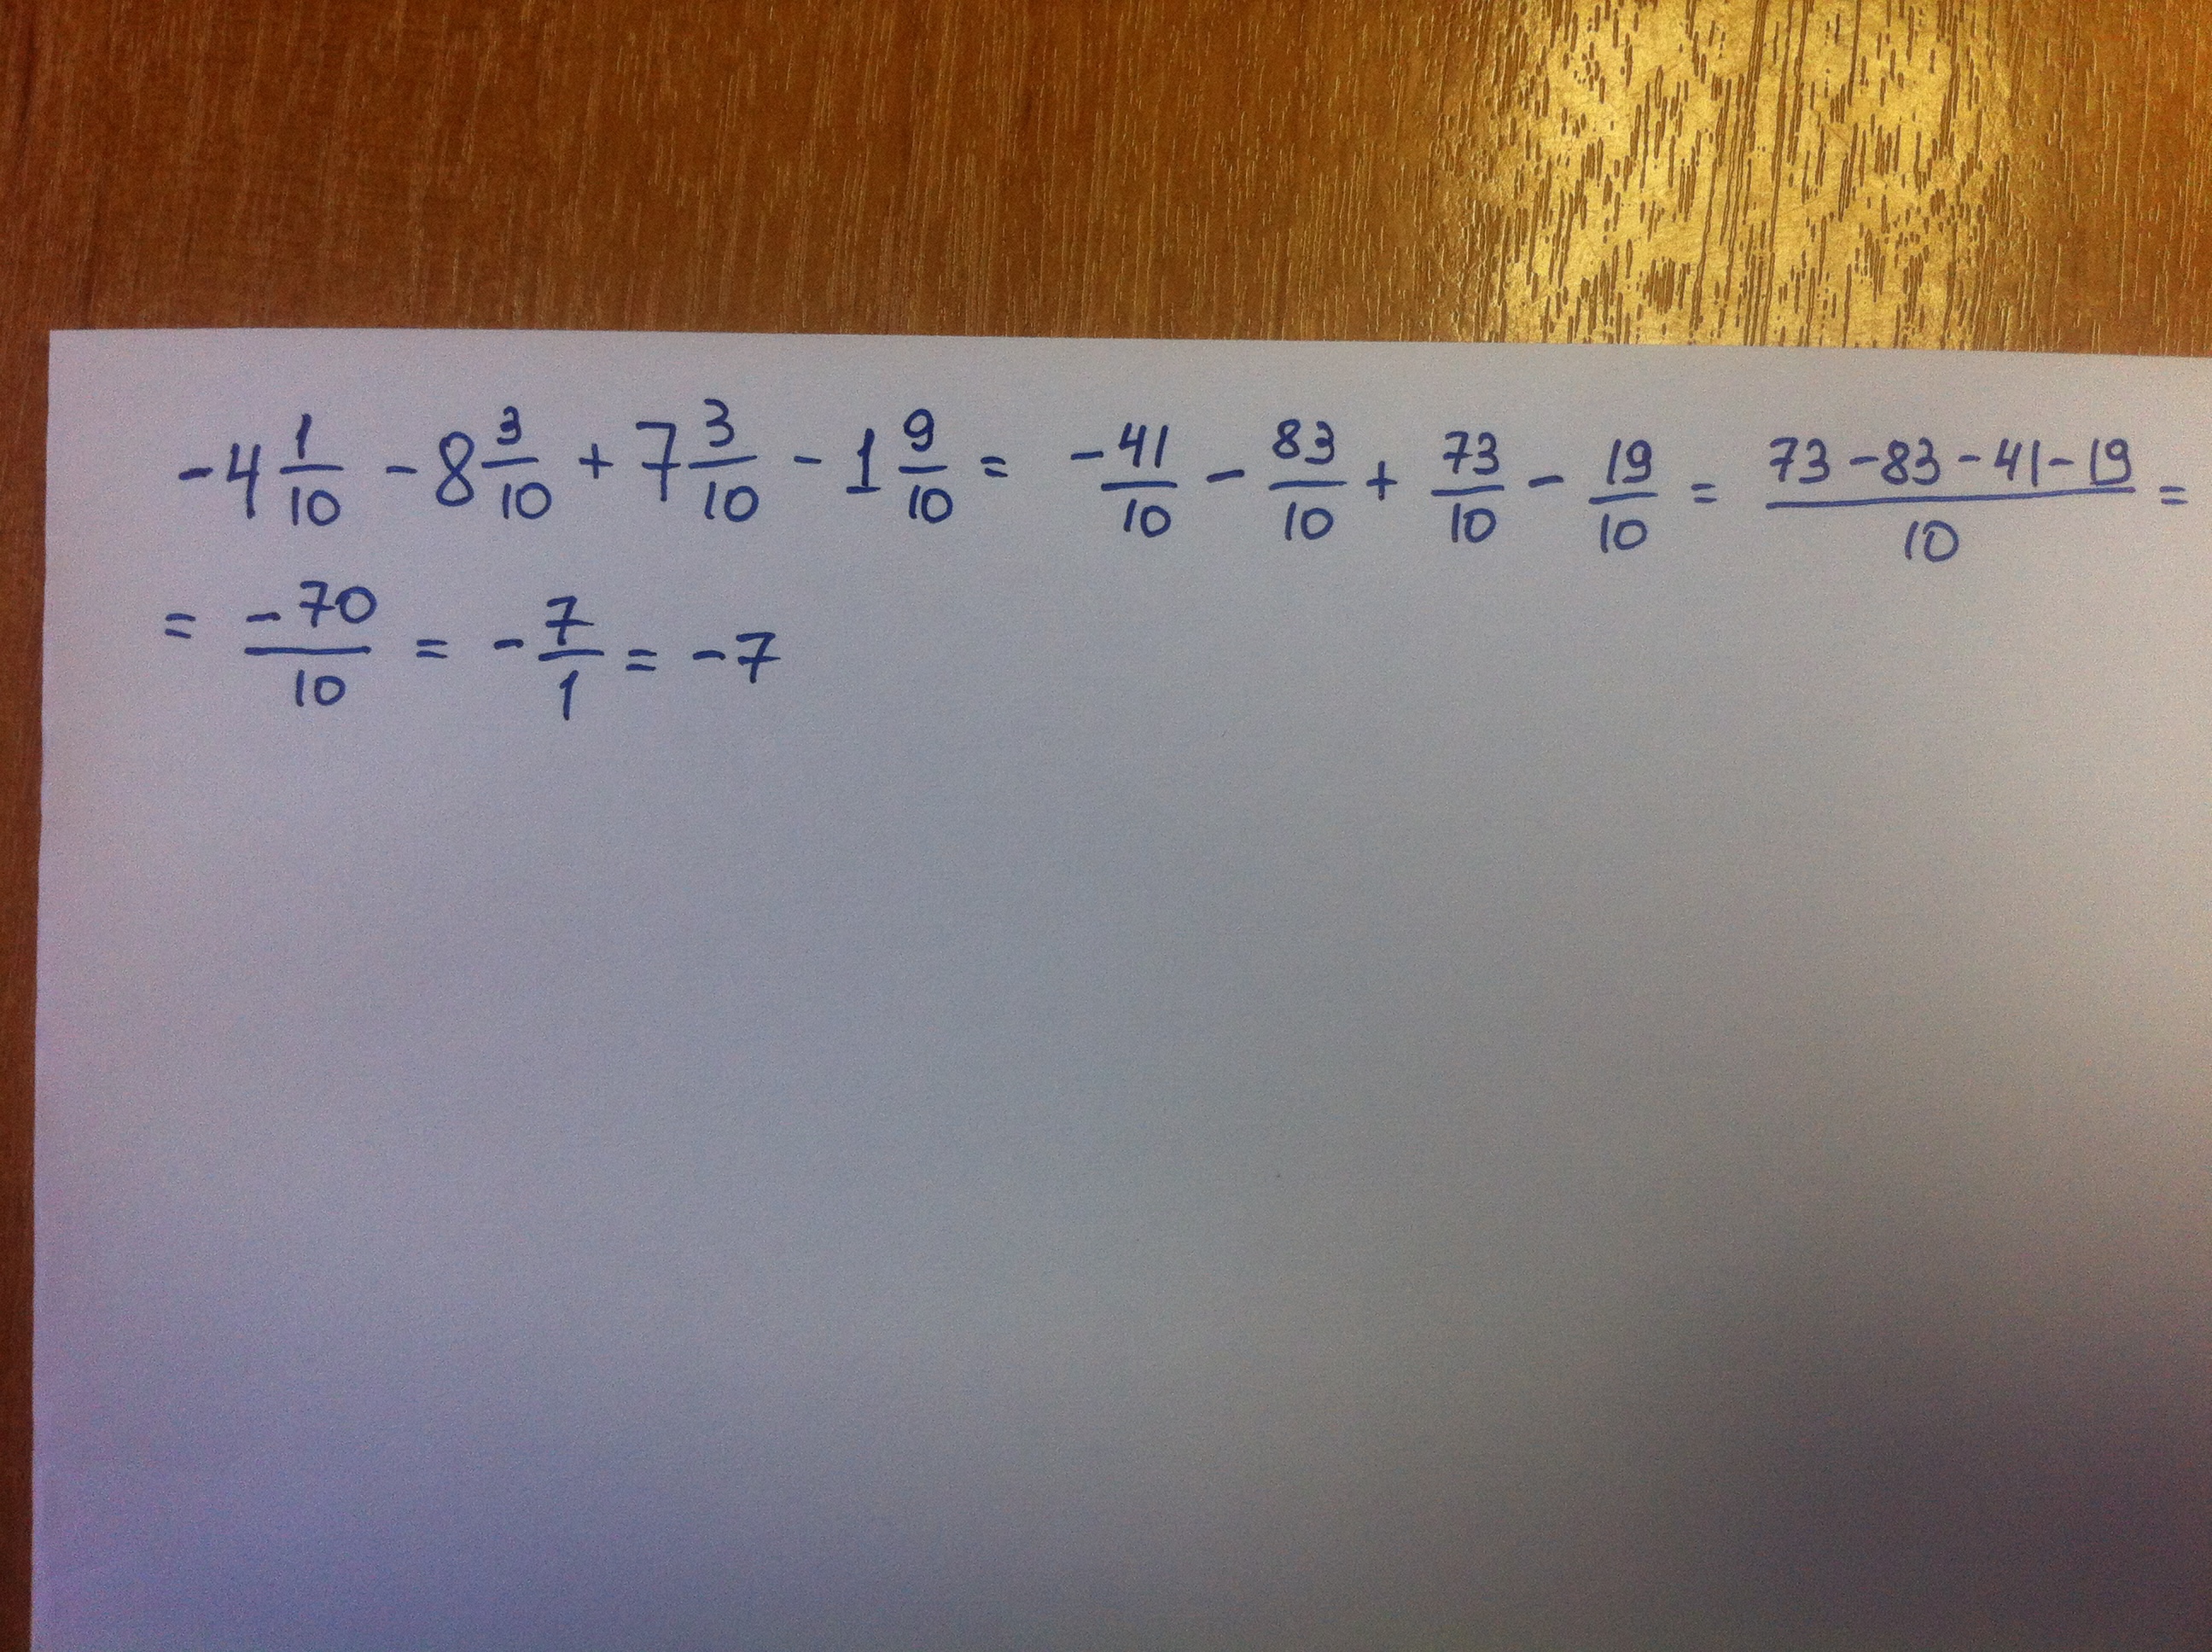 -4 1/10 - 8 3/10 + 7 3/10 - 1 9/10 = -41/10 - 83/10 + 73/10 - 19/10 = (73-83-41-19)/10 =
= -70/10 = -7/1 = -7